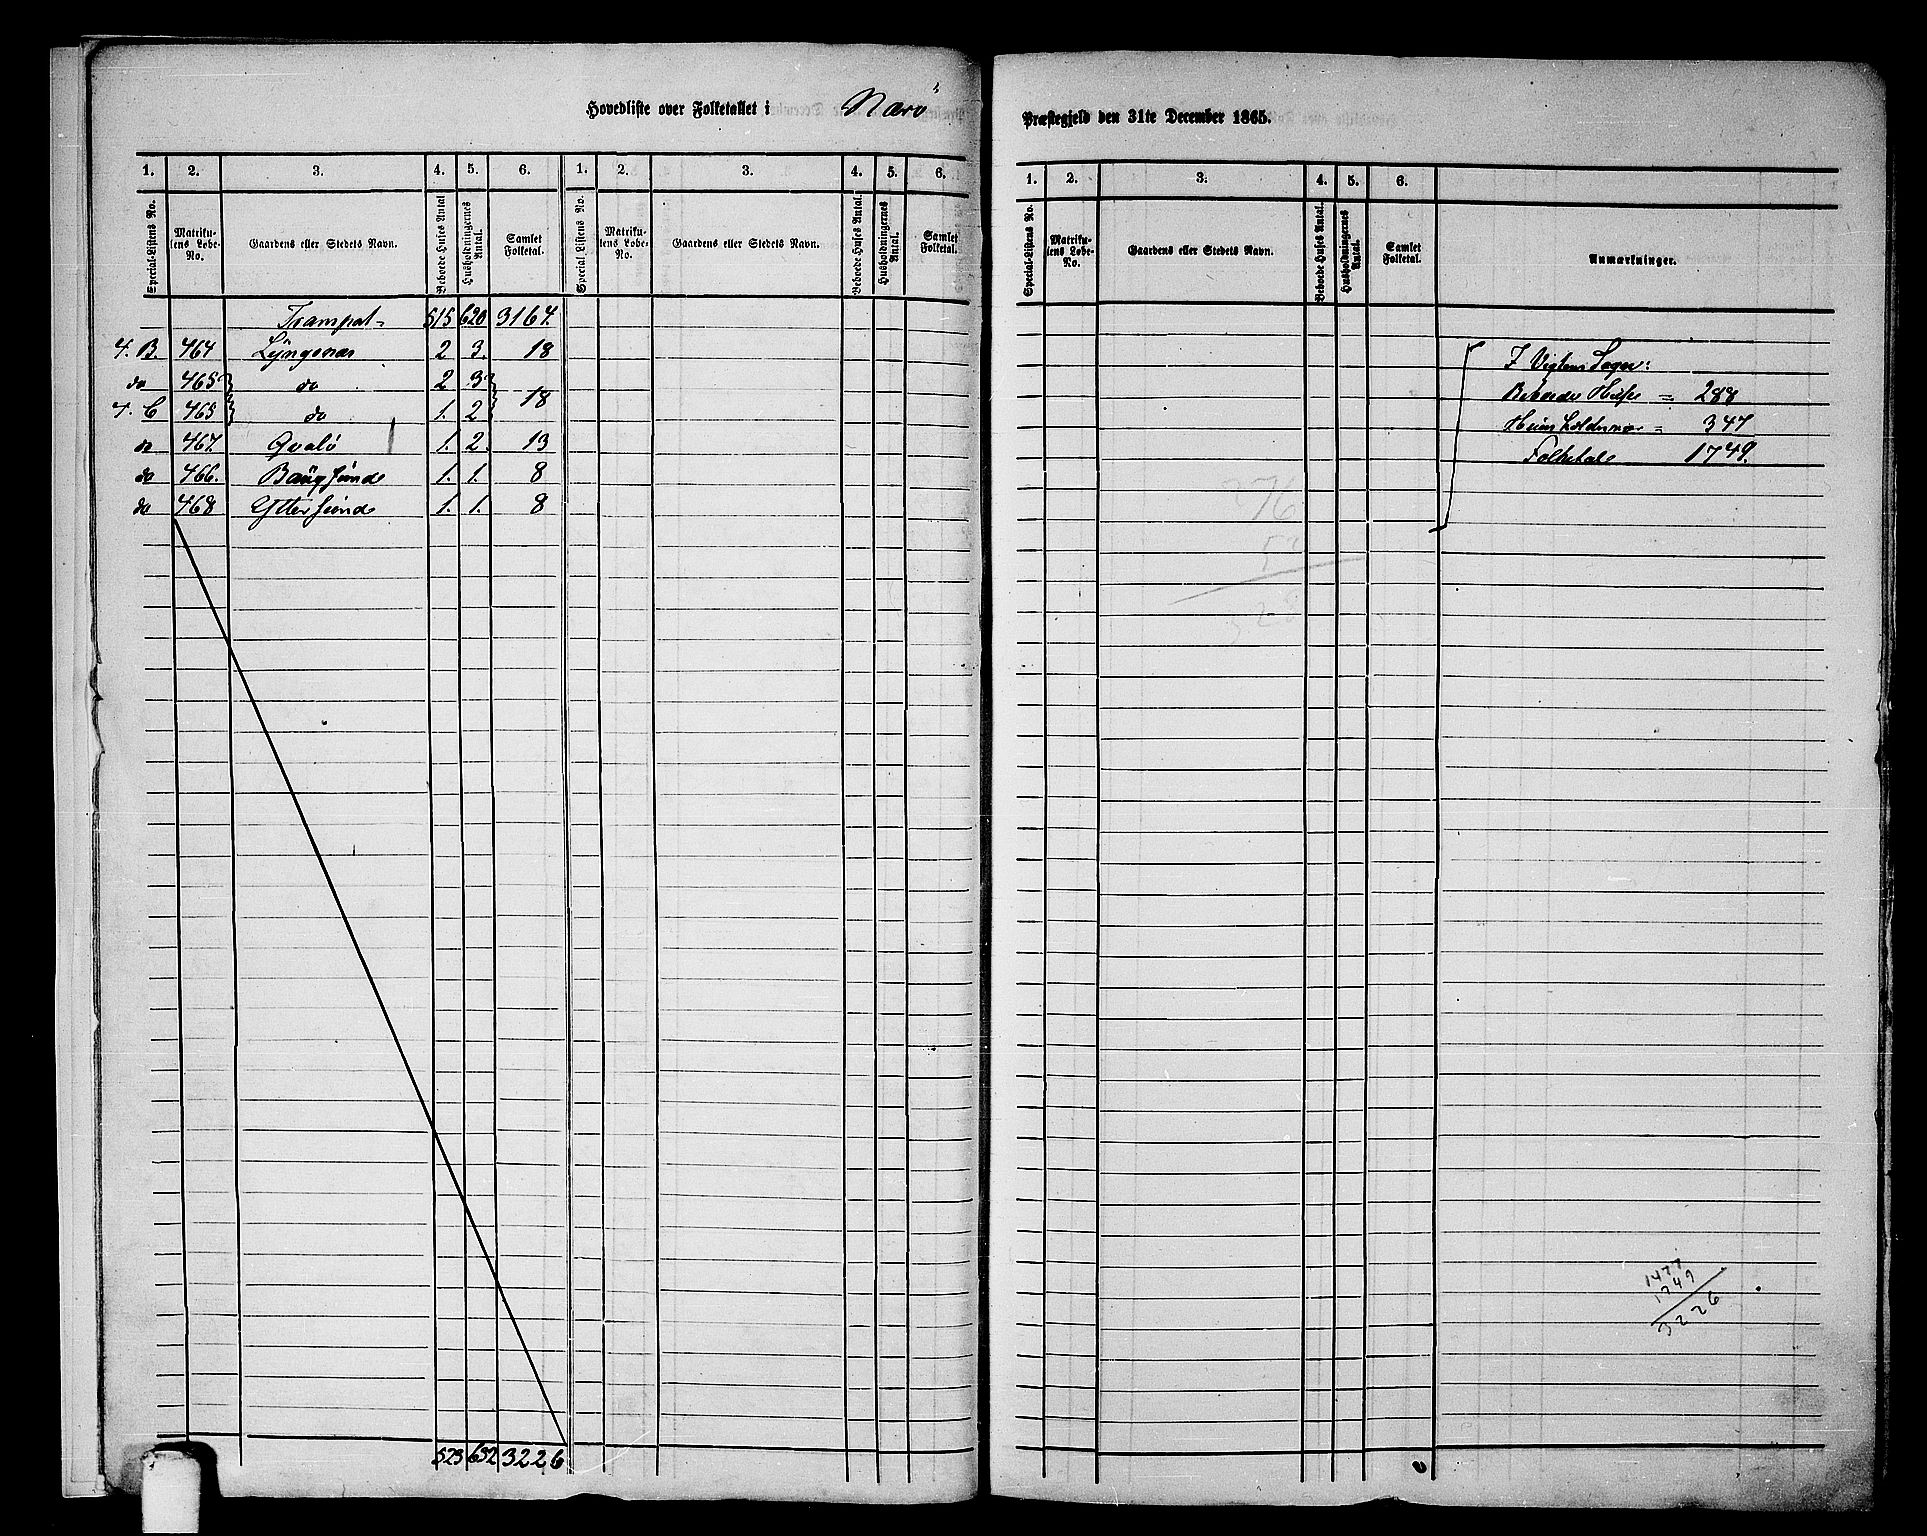 Hovedliste over Folketallet i Nærø Præstegjeld den 31te December 1865.
1. 2. 3. 4. 5. 6. 1. 2. 3. 4. 5. 6.
Special-Listens No. Matrikulens Løbe-No. Gaardens eller Stedets Navn. Beboede Huses Antal Husholdningernes Antal. Samlet Folketal. Special Listens No. Matrikulens Løbe-No. Gaardens eller Stedets Navn. Beboede Huses Antal. Husholdningernes Antal. Samlet Folketal.
Transport= 515 620 3164.
4. B. 464 Lÿngsnæs 2 3. 18
do 465 do 2 3
18
4. C 465 do 1. 2
do 467. Qvalø 1. 2. 13
do 466. Baŭgsŭnde 1. 1. 8
do 468 Yttersŭnde 1. 1. 8
523 632 3226
1. 2. 3. 4. 5. 6.
Special-Listens No. Matrikulens Løbe-No. Gaardens eller Stedets Navn. Beboede Huses Antal. Husholdningernes Antal. Samlet Folketal. Anmærkninger.
I Vigtens Sogn:
Beboede Huse = 288
= 347
Folketal 1749.
376
52
328
1477
1749
3226